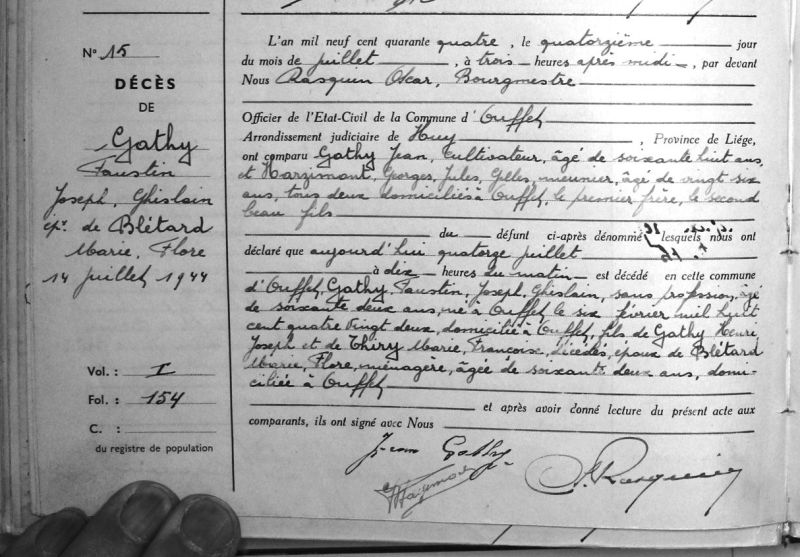 N° 15
DÉCÈS
DE
Gathy
Faustin
Joseph, Ghislain
épx de Blétard
Marie, Flore
14 juillet 1944
Vol. : I
Fol. : 154
C. :
du registre de population
L'an mil neuf cent quarante quatre, le quatorzième jour
du mois de juillet, à trois heures après midi, par devant
Nous Rasquin Oscar, Bourgmestre
Officier de l'Etat-Civil de la Commune d'Ouffet
Arrondissement judiciaire de Huy, Province de Liége,
ont comparu Gathy Jean, Cultivateur, âgé de soixante huit ans,
et Harzimont, Georges, Jules, Gilles, meunier, âgé de vingt six
ans, tous deux domiciliés à Ouffet, le premier frère, le second
beau fils
du défunt ci-après dénommé lesquels nous ont
déclaré que aujourd'hui quatorze juillet
à dix heures du matin est décédé en cette commune
d'Ouffet, Gathy, Faustin, Joseph, Ghislain, sans profession, âgé
de soixante deux ans, né à Ouffet le six février mil huit
cent quatre vingt deux, domicilié à Ouffet, fils de Gathy Henri
Joseph et de Thiry Marie, Françoise, décédés, époux de Blétard
Marie, Flore, ménagère, âgée de soixante deux ans, domi-
ciliée à Ouffet
et après avoir donné lecture du présent acte aux
comparants, ils ont signé avec Nous
Jean Gathy
Rasquin